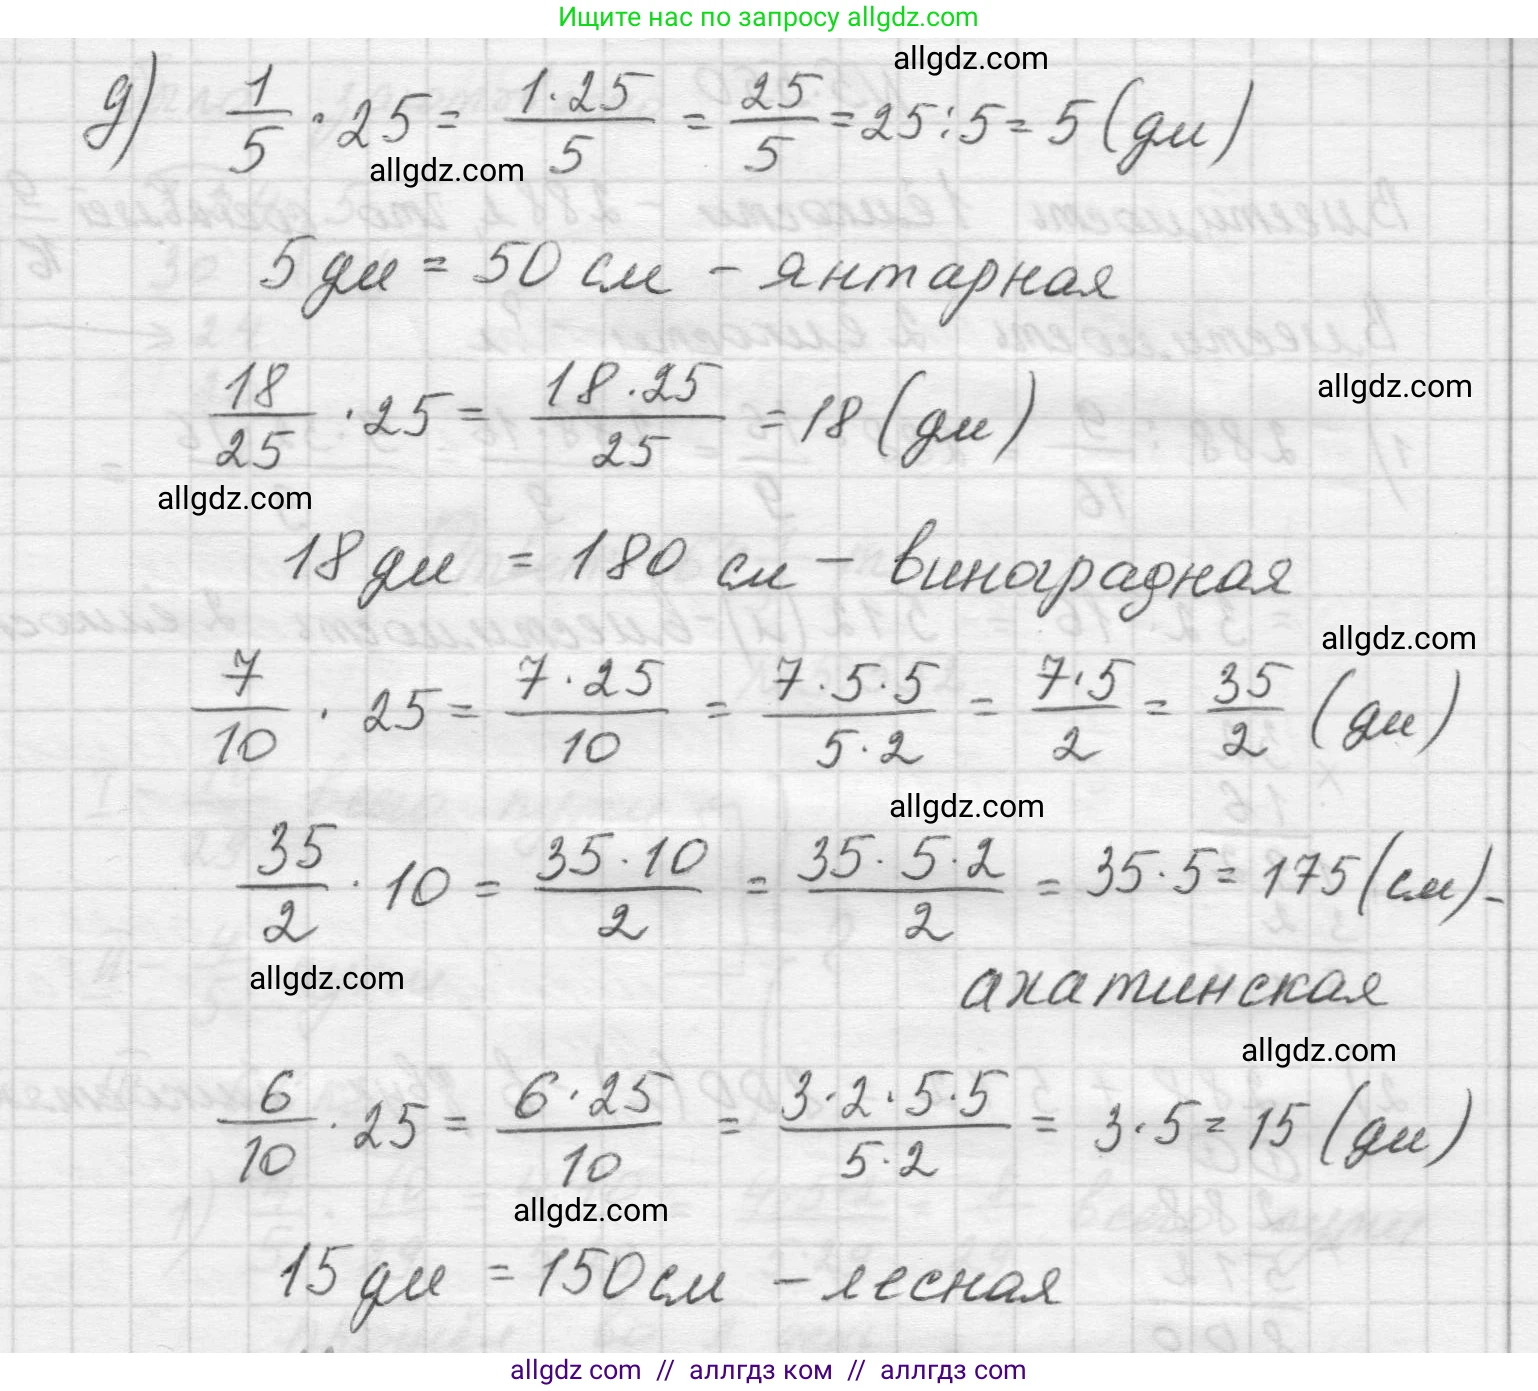 Ищите нас по запросу allgdz.com
allgdz.com
д) 1/5 · 25 = 1·25/5 = 25/5 = 25:5 = 5 (дм)
allgdz.com
5 дм = 50 см - янтарная
18/25 · 25 = 18·25/25 = 18 (дм)
allgdz.com
allgdz.com
18 дм = 180 см - виноградная
allgdz.com
7/10 · 25 = 7·25/10 = 7·5·5/5·2 = 7·5/2 = 35/2 (дм)
allgdz.com
35/2 · 10 = 35·10/2 = 35·5·2/2 = 35·5 = 175 (см) -
allgdz.com
ахатинская
allgdz.com
6/10 · 25 = 6·25/10 = 3·2·5·5/5·2 = 3·5 = 15 (дм)
allgdz.com
15 дм = 150 см - лесная
allgdz.com // аллгдз ком // аллгдз com